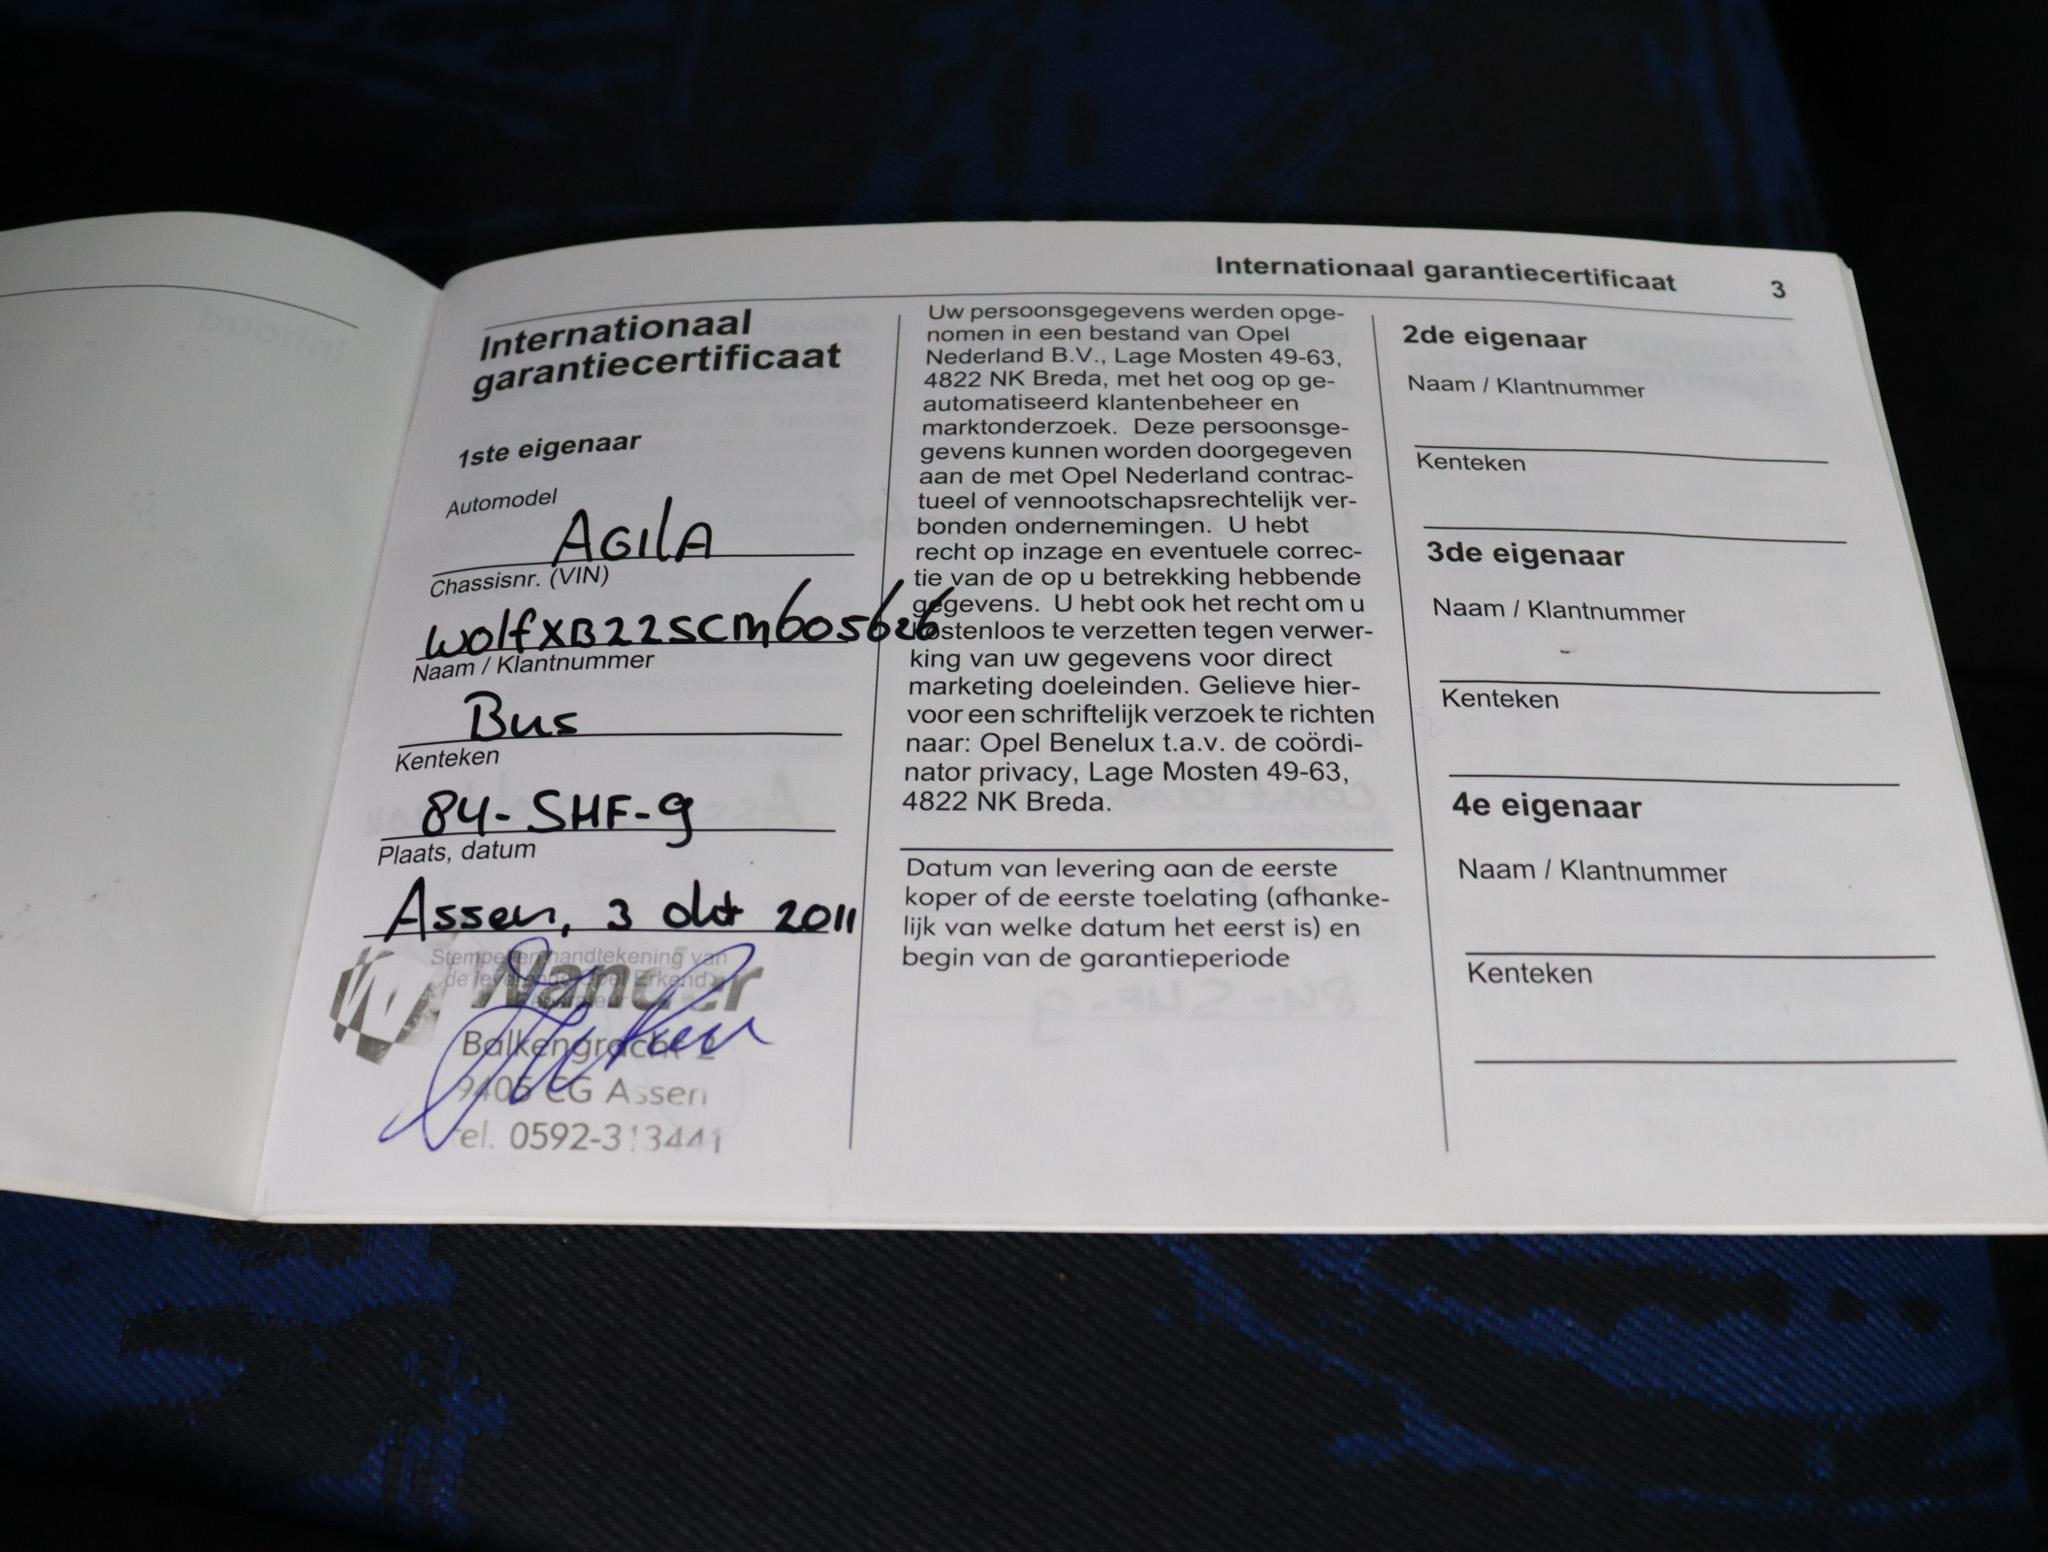 Internationaal garantiecertificaat 3
Internationaal
garantiecertificaat
1ste eigenaar
Automodel
AGILA
Chassisnr. (VIN)
WOLFXB22SCM605626
Naam / Klantnummer
Bus
Kenteken
84-SHF-9
Plaats, datum
Assen, 3 okt 2011
Stempel en handtekening van
de Opel Erkend
Wander
Balkengracht 2
9405 CG Assen
Tel. 0592-313441
Uw persoonsgegevens werden opge-
nomen in een bestand van Opel
Nederland B.V., Lage Mosten 49-63,
4822 NK Breda, met het oog op ge-
automatiseerd klantenbeheer en
marktonderzoek. Deze persoonsge-
gevens kunnen worden doorgegeven
aan de met Opel Nederland contrac-
tueel of vennootschapsrechtelijk ver-
bonden ondernemingen. U hebt
recht op inzage en eventuele correc-
tie van de op u betrekking hebbende
gegevens. U hebt ook het recht om u
kostenloos te verzetten tegen verwer-
king van uw gegevens voor direct
marketing doeleinden. Gelieve hier-
voor een schriftelijk verzoek te richten
naar: Opel Benelux t.a.v. de coördi-
nator privacy, Lage Mosten 49-63,
4822 NK Breda.
Datum van levering aan de eerste
koper of de eerste toelating (afhanke-
lijk van welke datum het eerst is) en
begin van de garantieperiode
2de eigenaar
Naam / Klantnummer
Kenteken
3de eigenaar
Naam / Klantnummer
Kenteken
4e eigenaar
Naam / Klantnummer
Kenteken